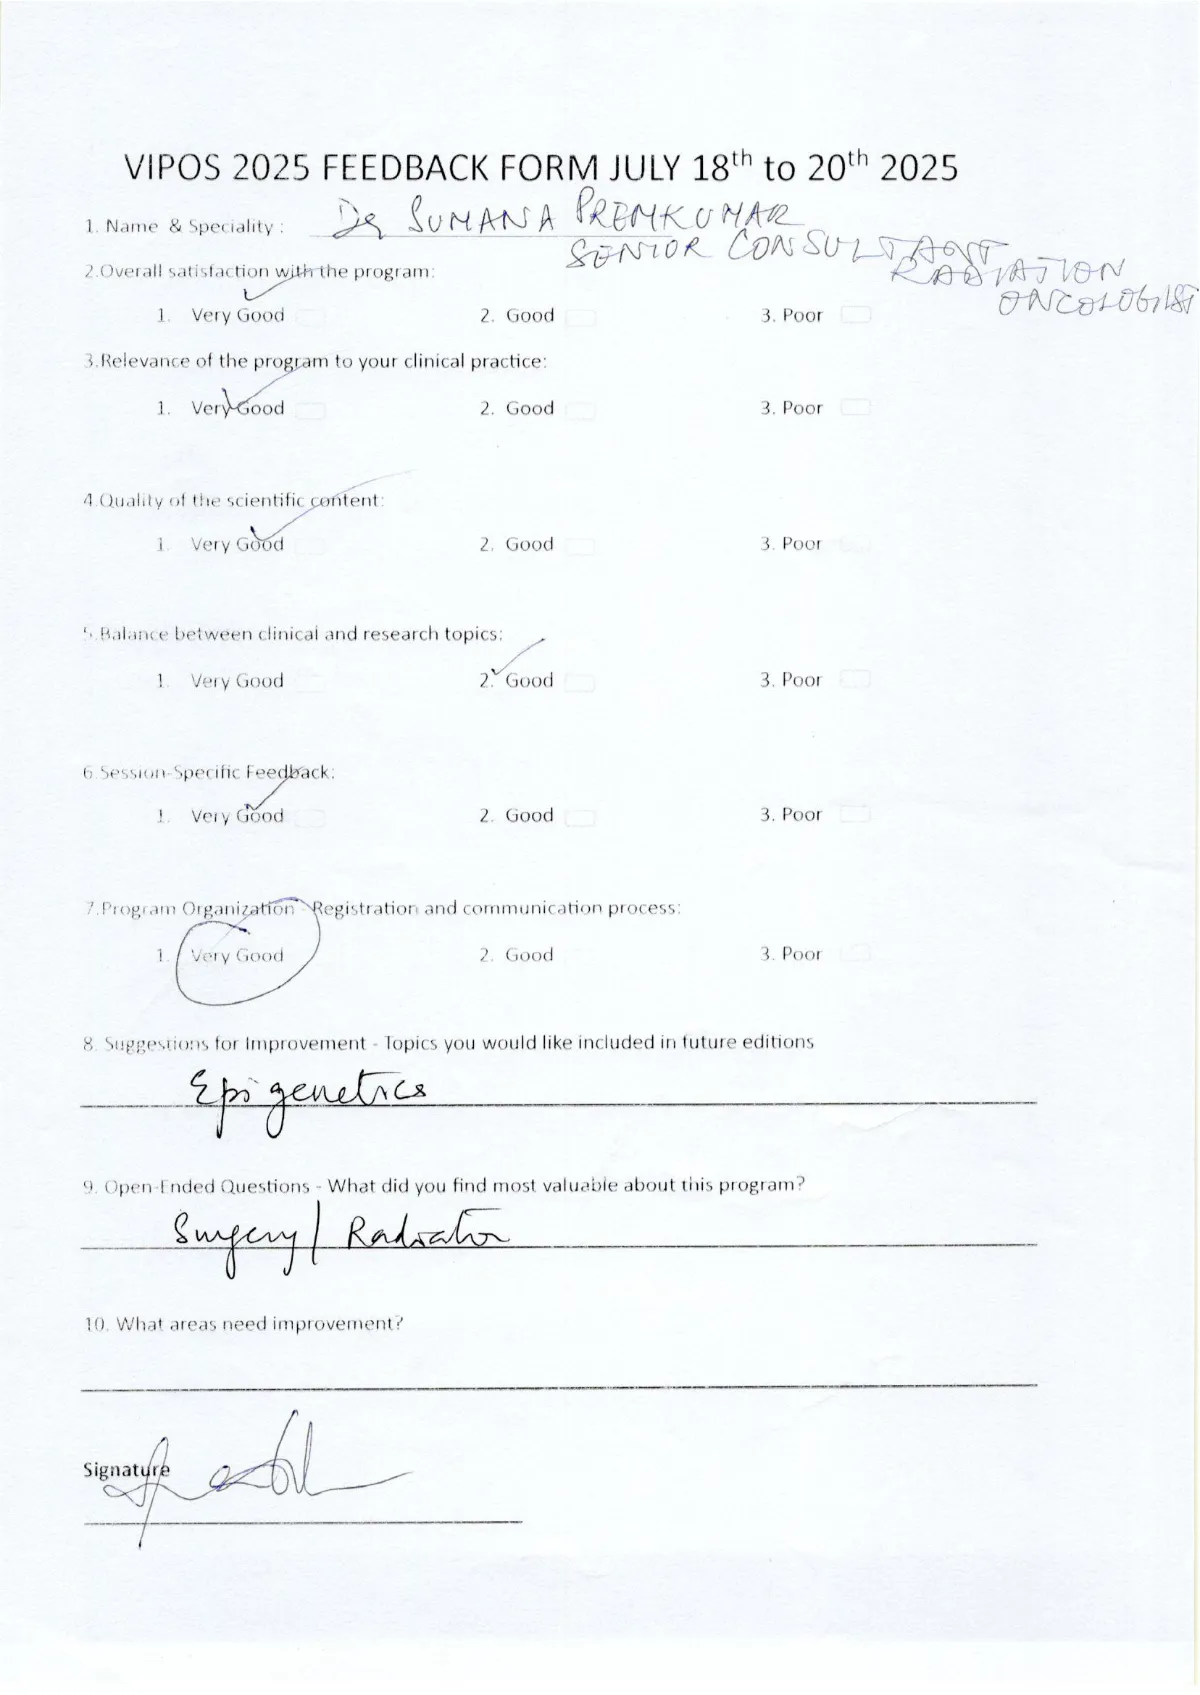 VIPOS 2025 FEEDBACK FORM JULY 18th to 20th 2025
1. Name & Speciality : Dr SUMANA PREMKUMAR
SENIOR CONSULTANT
RADIATION
ONCOLOGIST
2.Overall satisfaction with the program:
1. Very Good 2. Good 3. Poor
3.Relevance of the program to your clinical practice:
1. Very Good 2. Good 3. Poor
4.Quality of the scientific content:
1. Very Good 2. Good 3. Poor
5.Balance between clinical and research topics:
1. Very Good 2. Good 3. Poor
6.Session-Specific Feedback:
1. Very Good 2. Good 3. Poor
7.Program Organization - Registration and communication process:
1. Very Good 2. Good 3. Poor
8. Suggestions for Improvement - Topics you would like included in future editions
Epigenetics
9. Open-Ended Questions - What did you find most valuable about this program?
Surgery/ Radiation
10. What areas need improvement?
Signature